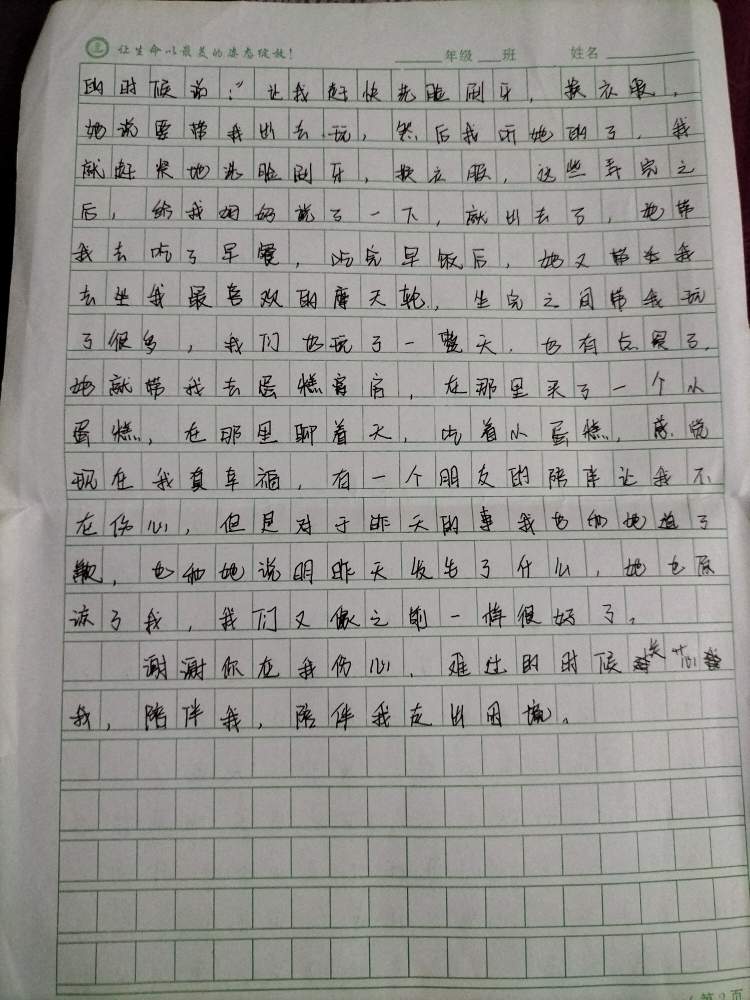 让生命以最美的姿态绽放！ 年级 班 姓名
的时候说：“让我赶快洗脸刷牙，换衣服，
她说要带我出去玩，然后我听她的了，我
就赶紧地洗脸刷牙，换衣服，这些弄完之
后，给我妈妈说了一下，就出去了，她带
我去吃了早餐，吃完早饭后，她又带着我
去坐我最喜欢的摩天轮，坐完之间带我玩
了很多，我们也玩了一整天，也有点累了，
她就带我去蛋糕店，在那里买了一个小
蛋糕，在那里聊着天，吃着小蛋糕，感觉
现在我真幸福，有一个朋友的陪伴让我不
在伤心，但是对于昨天的事我也和她道了
歉，也和她说明昨天发生了什么，她也原
谅了我，我们又像之前一样很好了。
谢谢你在我伤心，难过的时候关心
我，陪伴我，陪伴我走出困境。
第2页